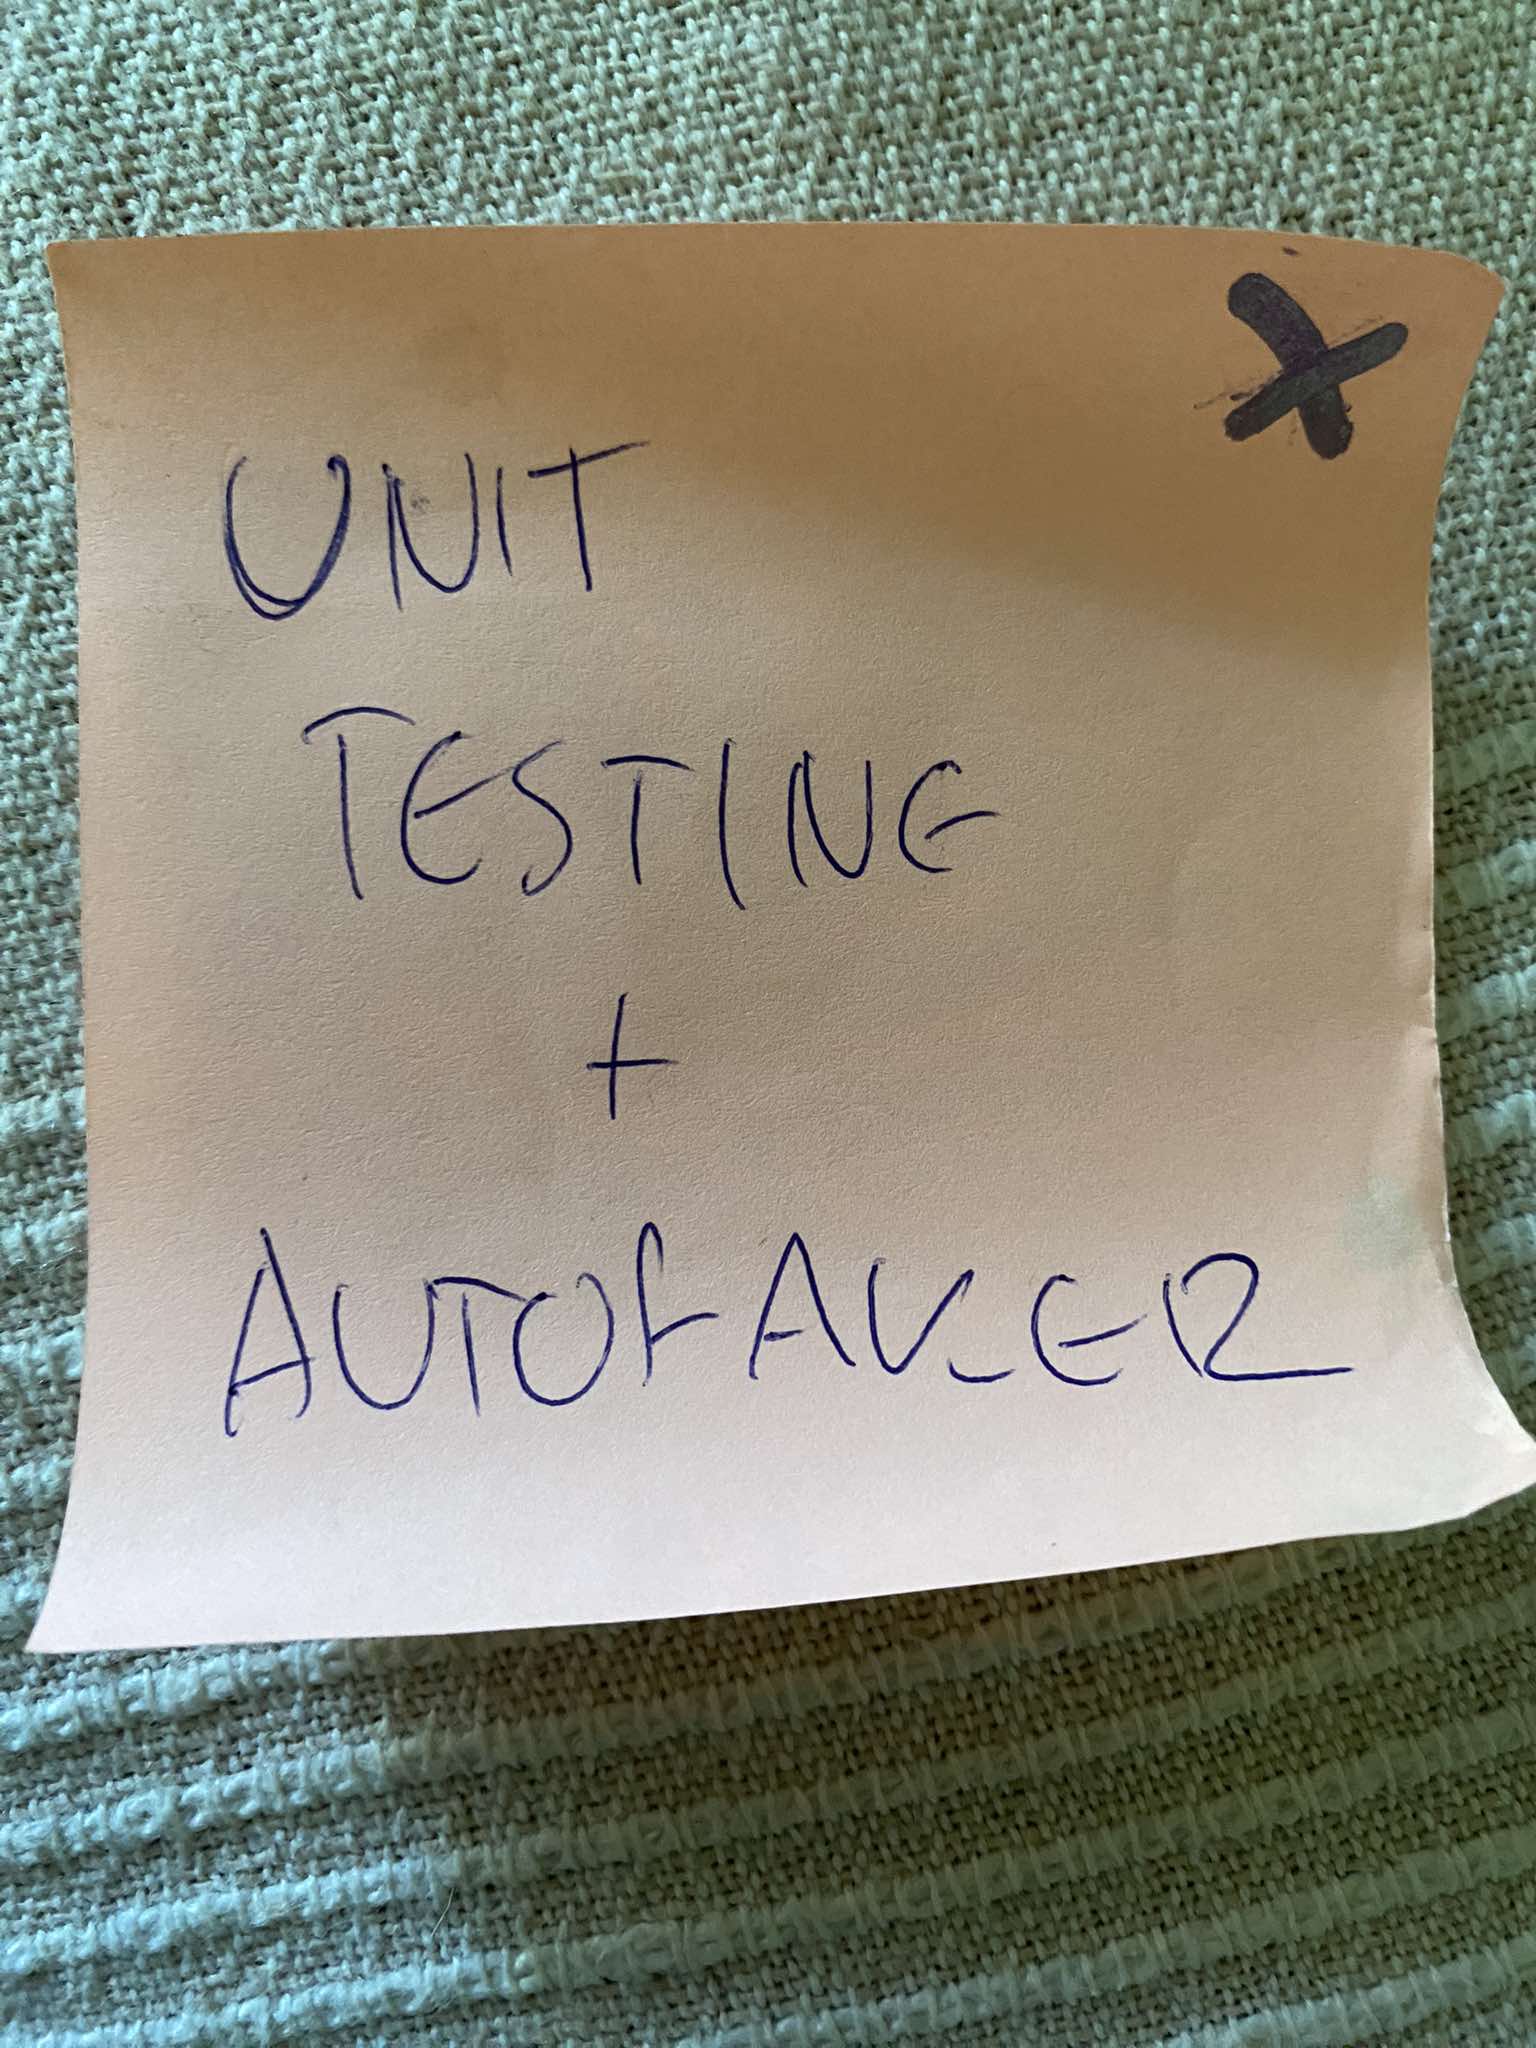 X
UNIT
TESTING
+
AUTOFAKER